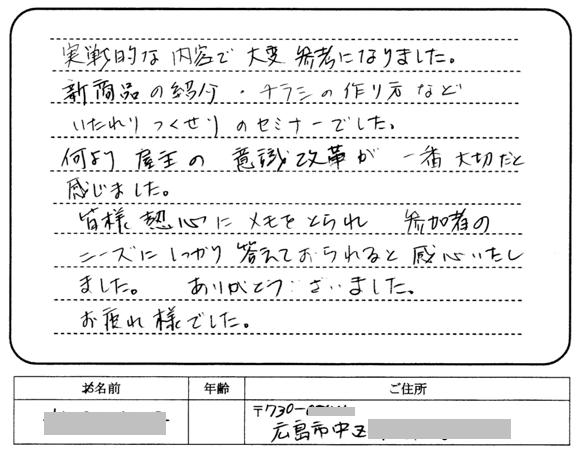 実戦的な内容で大変参考になりました。
新商品の紹介・チラシの作り方など
いたれりつくせりのセミナーでした。
何より屋主の意識改革が一番大切だと
感じました。
皆様熱心にメモをとられ 参加者の
ニーズにしっかり答えておられると感心いたし
ました。 ありがとうございました。
お疲れ様でした。
お名前 年齢 ご住所
〒730-
広島市中区